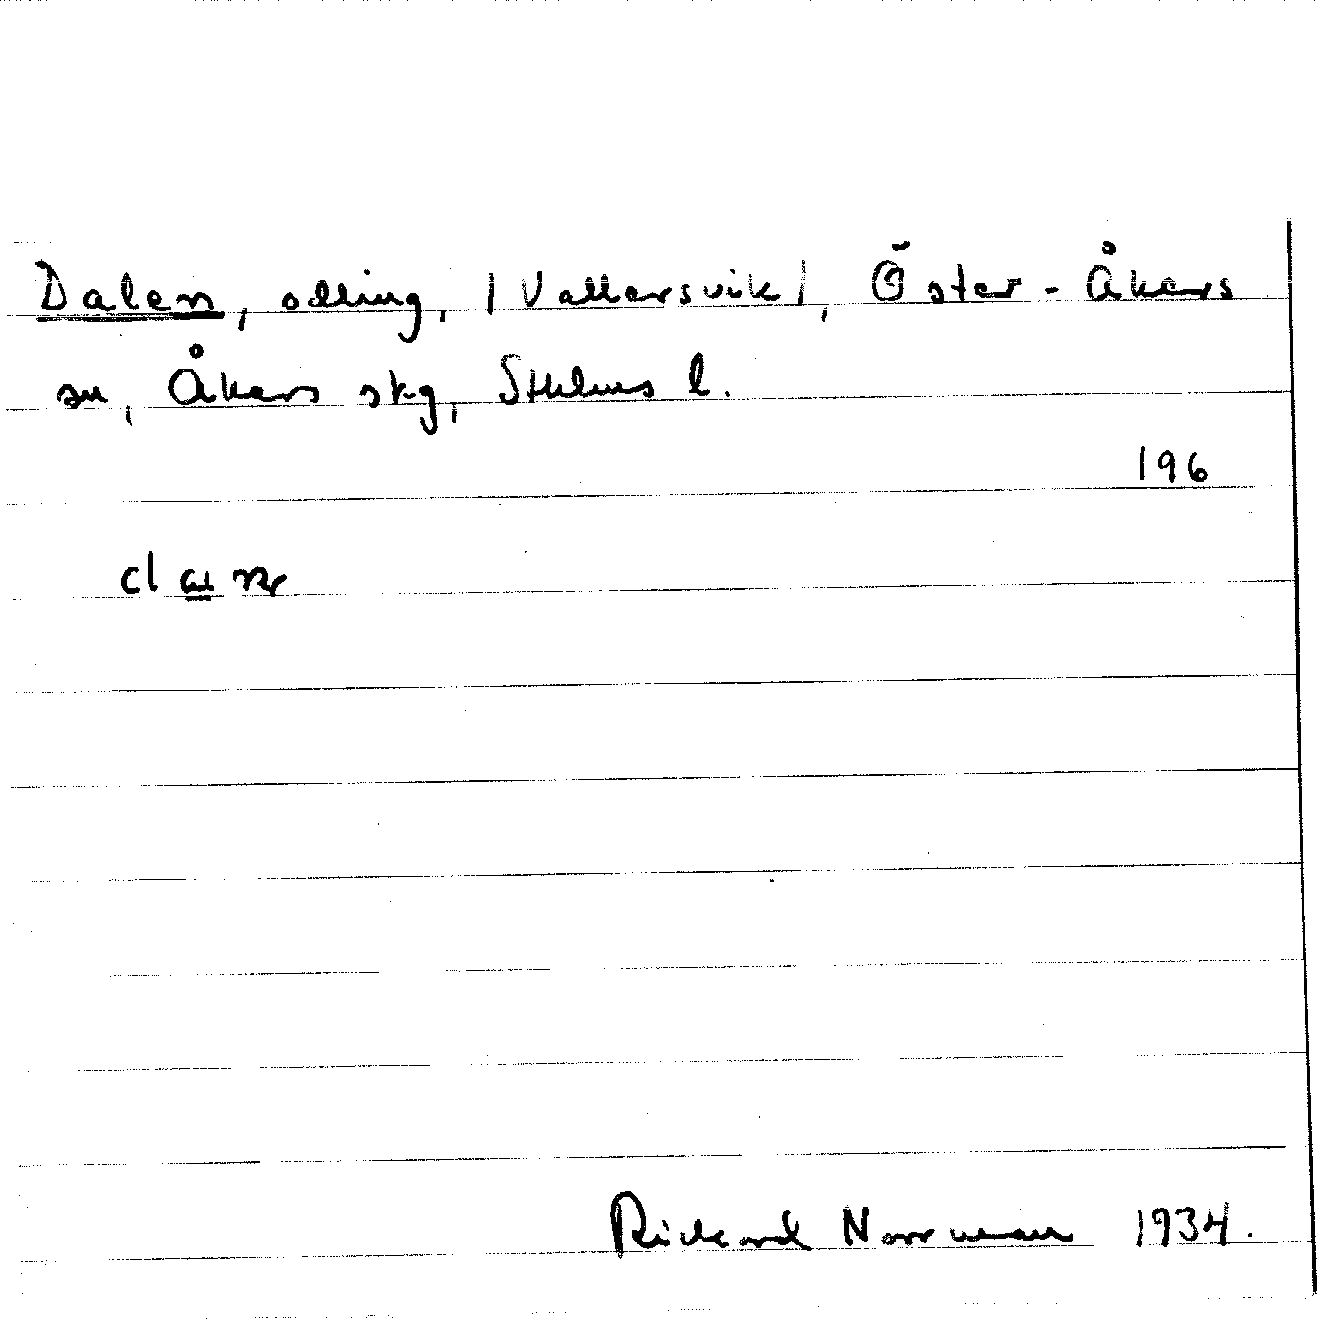 Dalen, odling, /Vallersvik/, Öster-Åkers
sn, Åkers skg, Sthlms l.
196
Rickard Norrman 1934.